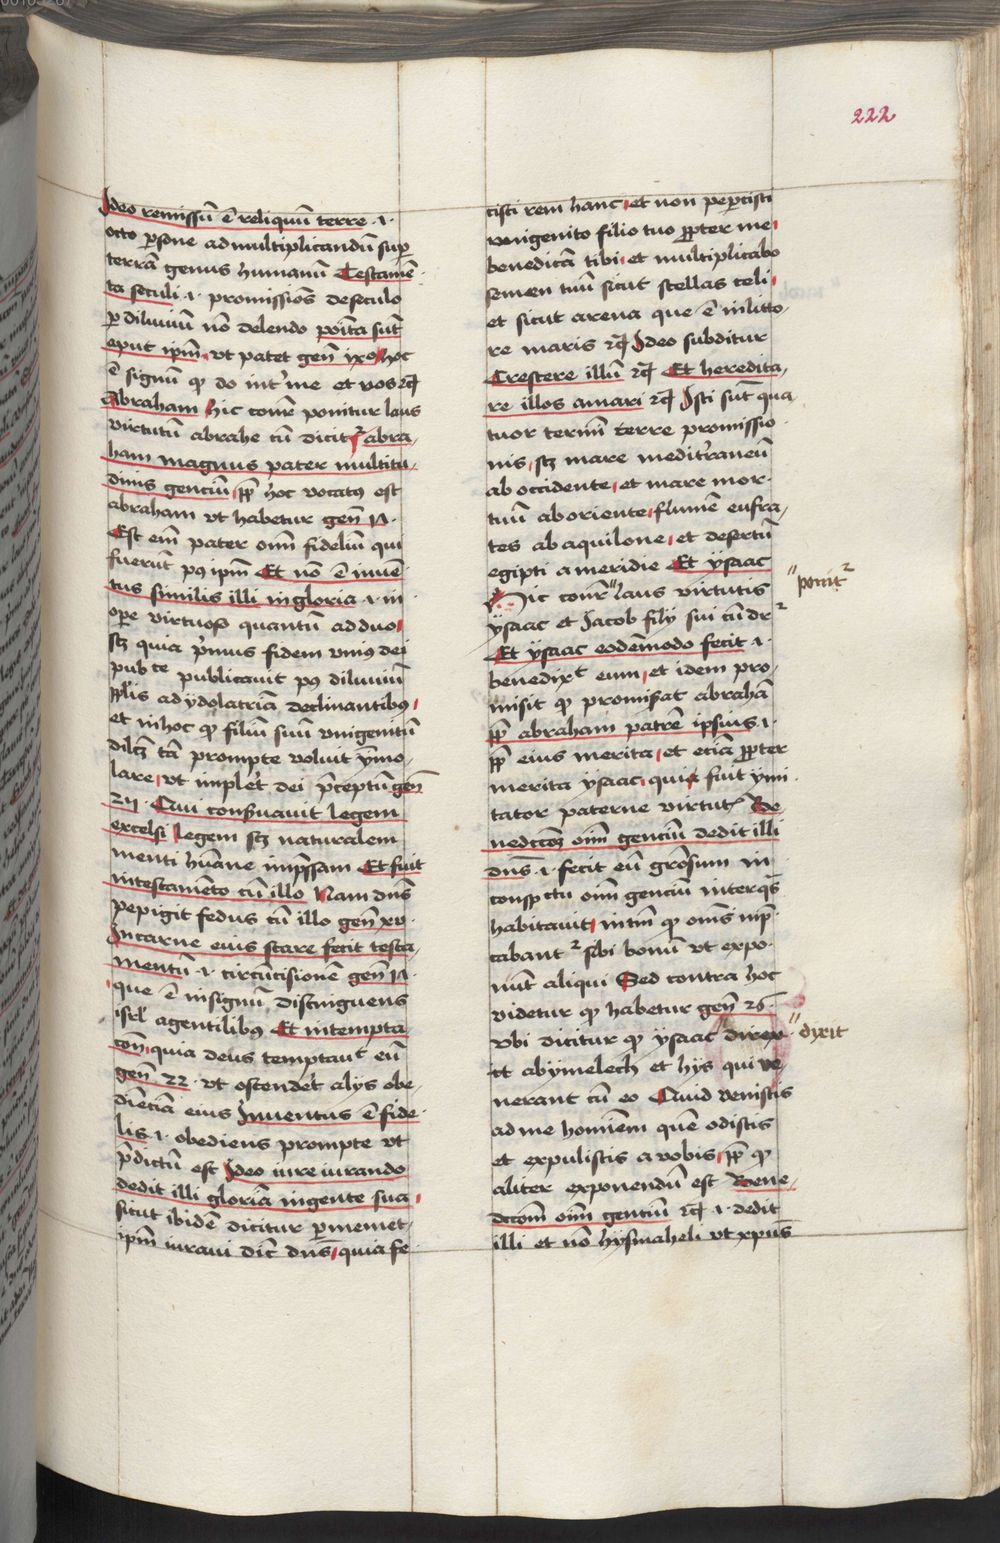 222
Ideo remissū ē reliquū terre .i.
octo ꝑsone ad multiplicandū suꝑ
terrā genus humanū Testamē
ta seculi .i. promissiōs de seculo
ꝑ diluuiū nō delendo poīta sūt
aput ipm̄ vt patet gen̄ ixo hoc
ē signū qđ do int̾ me et vos ꝛc̄
Abraham Hic com̄r ponitur laus
virtutū abrahe cū dicitᷣ abra
ham magnus pater multitu
dinis genciū ꝓp̄ hoc vocatꝰ est
abraham vt habetur gen̄ 17.
Est em̄ pater om̄ fidelium qui
fuerūt pꝰ ipm̄ Et nō ē inuē
tus similis illi in gloria .i. in
oꝑe virtuoso quantū ad duo
scꝫ quia p̾mus fidem vniꝰ dei
pub ce publicauit pꝰ diluuiū
pp̄lis ad ydolatriā declinantibꝰ
et in hoc qđ filiū suū vnigenitū
dilcꝫ tā prompte voluit ymo
lare vt implet̾ dei p̄ceptū gen̄
22 . Qui conseruauit legem
excelsi legem scꝫ naturalem
menti hūane imp̄ssam Et fuit
in testamēto cū illo Nam dn̄s
pepigit fedus cū illo gen̄ xv.
In carne eius stare fecit testa
mentū .i. circūcisionē gen̄ 17.
que ē in signū distinguens
isrl̾ a gentilibꝰ Et in tempta
com̄ quia deus temptauit eū
gen̄ 22 . vt ostendet̾ alijs obe
dienciā eius Inuentus ē fide
lis .i. obediens prompte vt
p̄dictū est Ideo iure iurando
dedit illi gloriā in gente sua
sicut ibidē dicitur ꝑ memet
ipm̄ iuraui dic̄ dn̄s quia fe
cisti rem hanc et non pepercisti
vnigenito filio tuo ꝓpter me
benedicā tibi et multiplicabo
semen tuū sicut stellas celi
et sicut arena que ē in litto
re maris ꝛc̄ Ideo subditur
Crescere illū ꝛc̄ Et heredita
re illos a mari ꝛc̄ Isti sūt qua
tuor termī terre promissio
nis scꝫ mare meditraneū
ab occidente et mare mor
tuū ab oriente flumē eufra
tes ab aquilone et desertū
egipti a meridie Et ysaac
Hic com̄r " laus virtutis
ysaac et Jacob filij sui cū drᷣ
Et ysaac eodē modo fecit .i.
benedixᵗ eum et idem pro
misit qđ promiserat abrahā
ꝓp̄ abraham patrē ipsius .i.
ꝓp̄ eius merita et eciā ꝓpter
merita ysaac quia fuit ymi
tator paterne virtutꝭ Be
nedccōꝫ om̄ genciū dedit illi
dn̄s .i. fecit eū gr̄osum in
consp̄ctu om̄ genciū inter qˢ
habitauit in tm̄ qđ om̄s inp̄
cabantᷣ sibi bonū vt expo
nūt aliqui Sed contra hoc
videtur qđ habetur gen̄ 26
vbi dicitur qđ ysaac " direx
it abymelech et hijs qui ve
nerant cū eo Quid venistis
ad me hominem quē odistis
et expulistis a vobis ꝓp̄ qđ
aliter exponendū est Bene
dccōm̄ om̄ genciū ꝛc̄ .i. dedit
illi et nō hysmaheli vt xp̄us
" ponitᷣ
" dixit